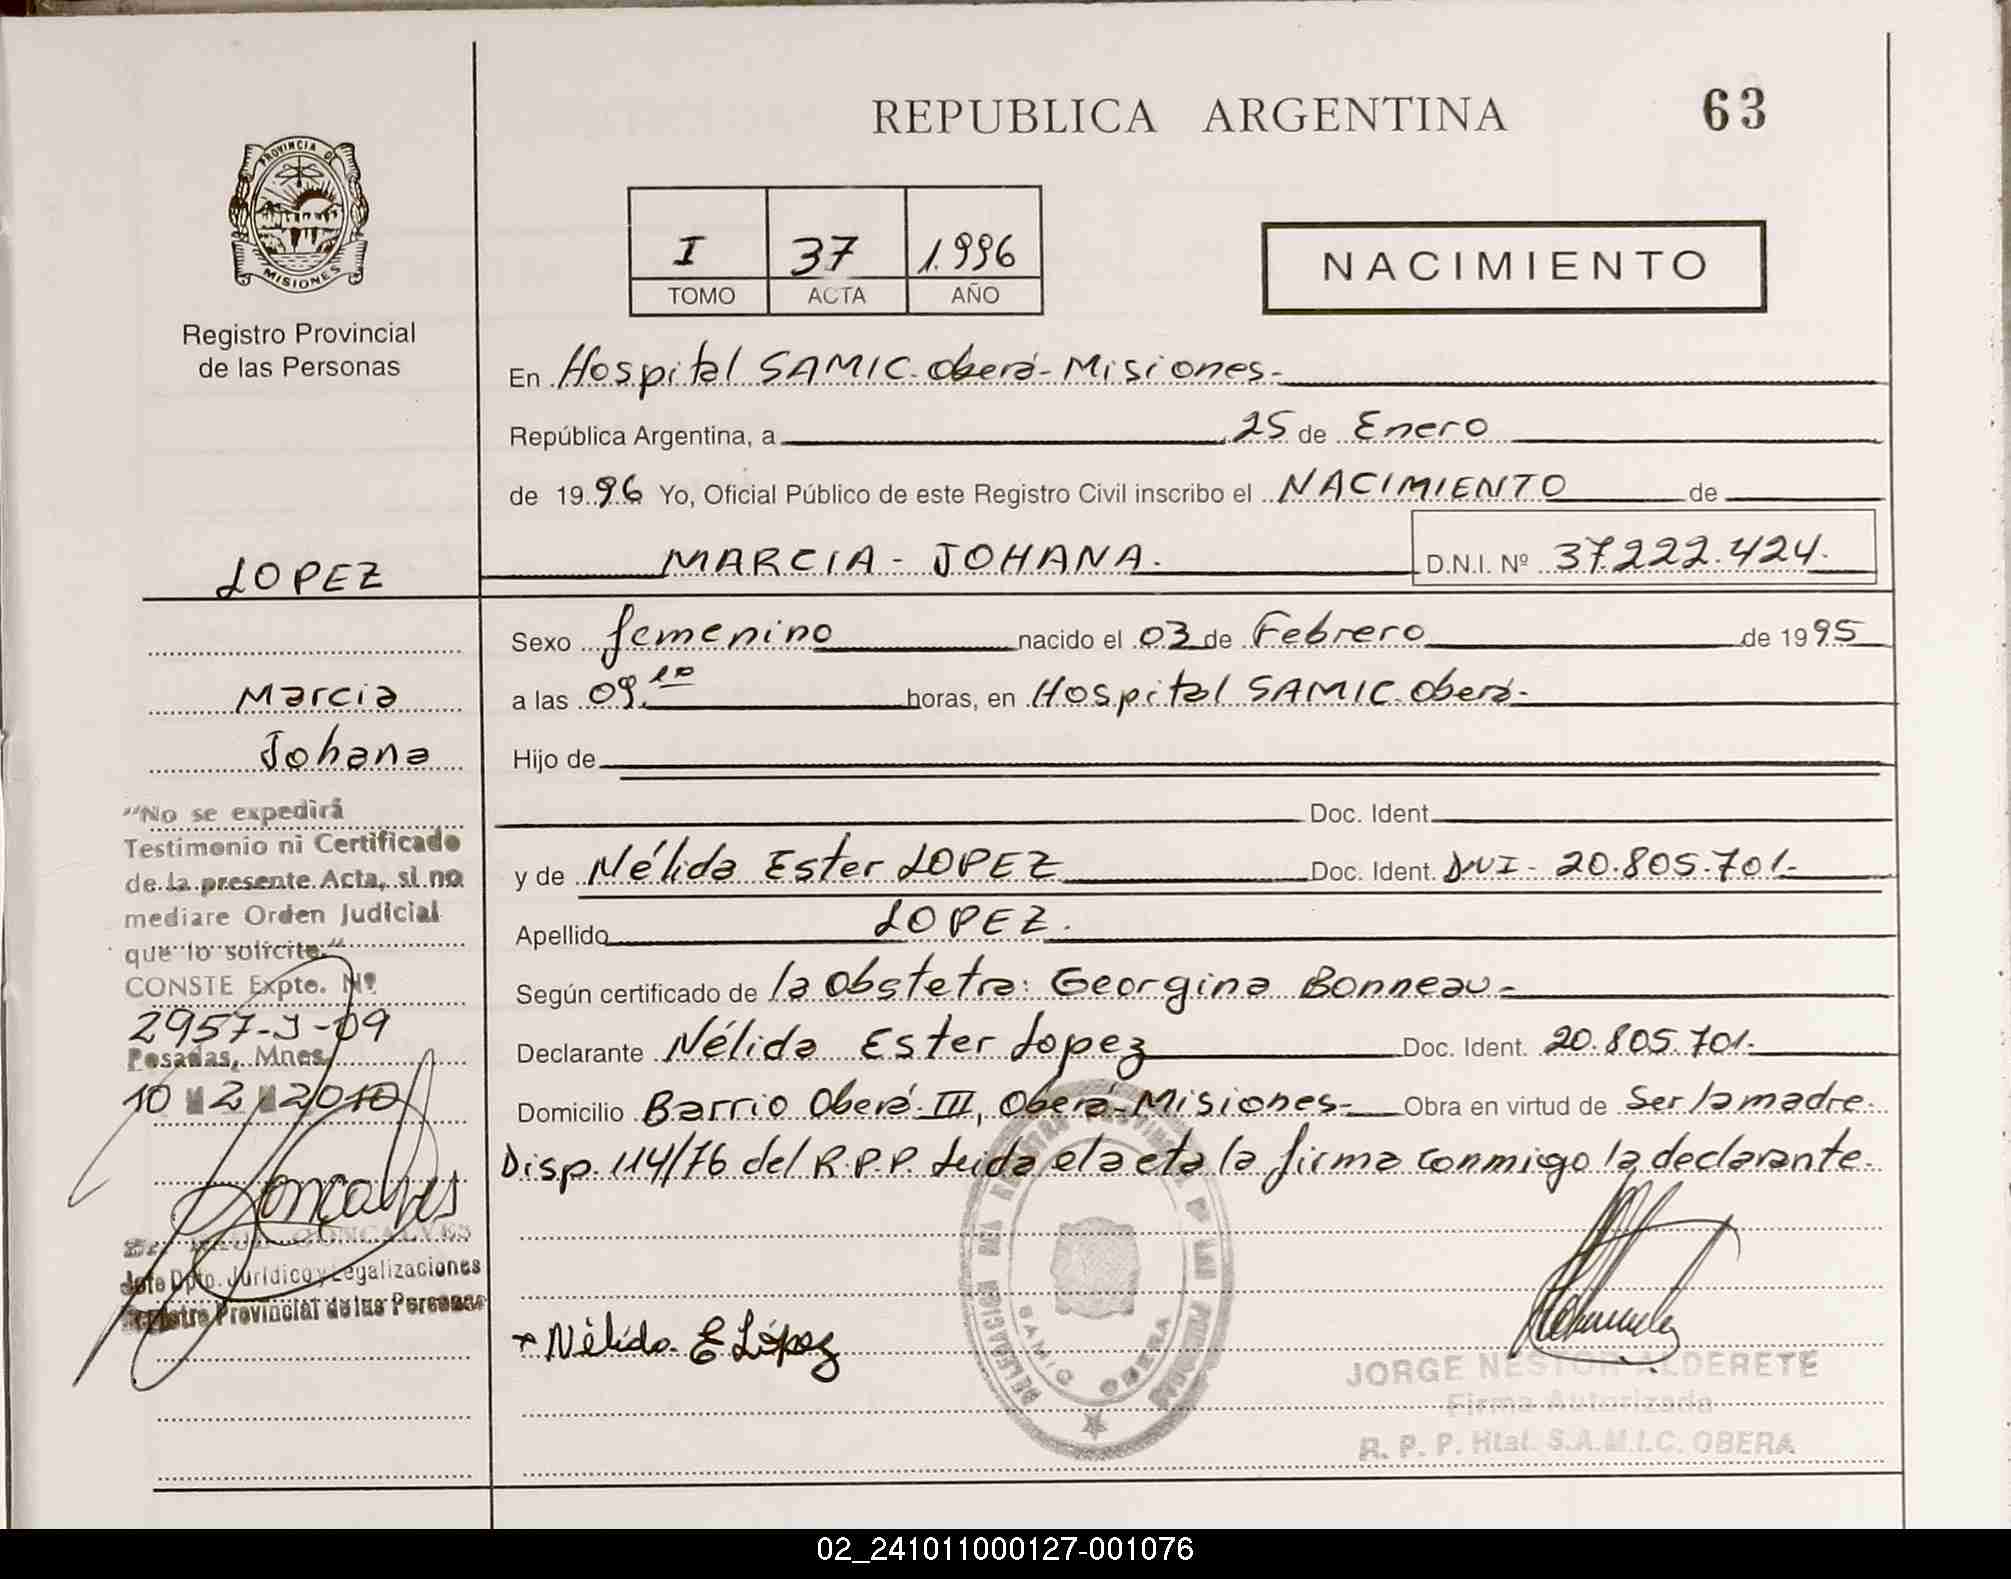 REPUBLICA ARGENTINA
63
PROVINCIA DE
MISIONES
Registro Provincial
de las Personas
I 37 1.996
TOMO ACTA AÑO
NACIMIENTO
En Hospital SAMIC. Oberá - Misiones.-
República Argentina, a 25 de Enero
de 1996 Yo, Oficial Público de este Registro Civil inscribo el NACIMIENTO de
MARCIA - JOHANA.
D.N.I. Nº 37.222.424.
LOPEZ
Marcia
Johana
Sexo femenino nacido el 03 de Febrero de 1995
a las 09.10 horas, en Hospital SAMIC. Oberá.
Hijo de
Doc. Ident.
y de Nélida Ester LOPEZ Doc. Ident. DNI - 20.805.701.-
Apellido LOPEZ.
Según certificado de la Obstetra: Georgina Bonneau.-
Declarante Nélida Ester Lopez Doc. Ident. 20.805.701.
Domicilio Barrio Oberá III, Oberá-Misiones.- Obra en virtud de Ser la madre.
Disp. 114/76 del R.P.P. Leida el acta la firma conmigo la declarante.
"No se expedirá
Testimonio ni Certificado
de la presente Acta, si no
mediare Orden Judicial
que lo solicite."
CONSTE Expte. Nº
2957-J-09
Posadas, Mnes.
10 2 2010
Goncalves
GONCALVES
Jefe Dpto. Jurídico y Legalizaciones
Registro Provincial de las Personas
Nélida E López
DELEGACION DEL REGISTRO PROVINCIAL DE LAS PERSONAS
SAMIC OBERA
JORGE NESTOR ALDERETE
Firma Autorizada
R. P. P. Htal. S.A.M.I.C. OBERA
02_241011000127-001076